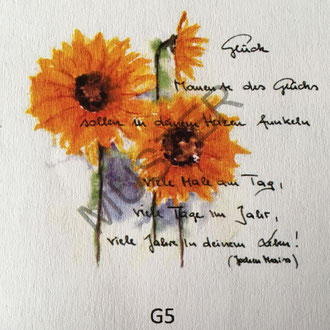 Glück
Momente des Glücks
sollen in deinem Herzen funkeln
viele Male am Tag,
viele Tage im Jahr,
viele Jahre in deinem Leben!
(Jochen Mariss)
MUSTER
G5